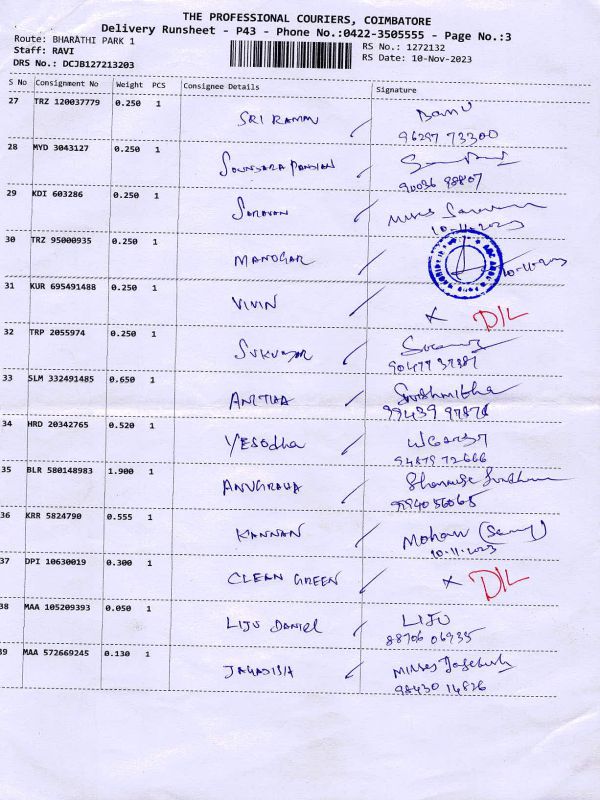 THE PROFESSIONAL COURIERS, COIMBATORE
Delivery Runsheet - P43 - Phone No.:0422-3505555 - Page No.:3
Route: BHARATHI PARK 1
RS No.: 1272132
Staff: RAVI
RS Date: 10-Nov-2023
DRS No.: DCJB127213203
S No Consignment No Weight PCS Consignee Details Signature
27 TRZ 120037779 0.250 1 SRI RAMAN
96297 73300
28 MYD 3043127 0.250 1 SOUNDARA PANDIAN
90036 98807
29 KDI 603286 0.250 1 SARAVAN
10-11-2023
30 TRZ 95000935 0.250 1 MANOGAR 10-11-2023
31 KUR 695491488 0.250 1 VIVIN X D/L
32 TRP 2055974 0.250 1 SUKUMAR
90477 37387
33 SLM 332491485 0.650 1 ANITHA Sushmitha
99439 97876
34 HRD 20342765 0.520 1 YESODHA
94879 72666
35 BLR 580148983 1.900 1 ANUGRAHA
9894056065
36 KRR 5824790 0.555 1 KANNAN Mohan
10-11-2023
37 DPI 10630019 0.300 1 CLEAN GREEN X D/L
38 MAA 105209393 0.050 1 LIJU DANIEL LIJU
88706 06935
39 MAA 572669245 0.130 1 JAGADISH
98430 14826